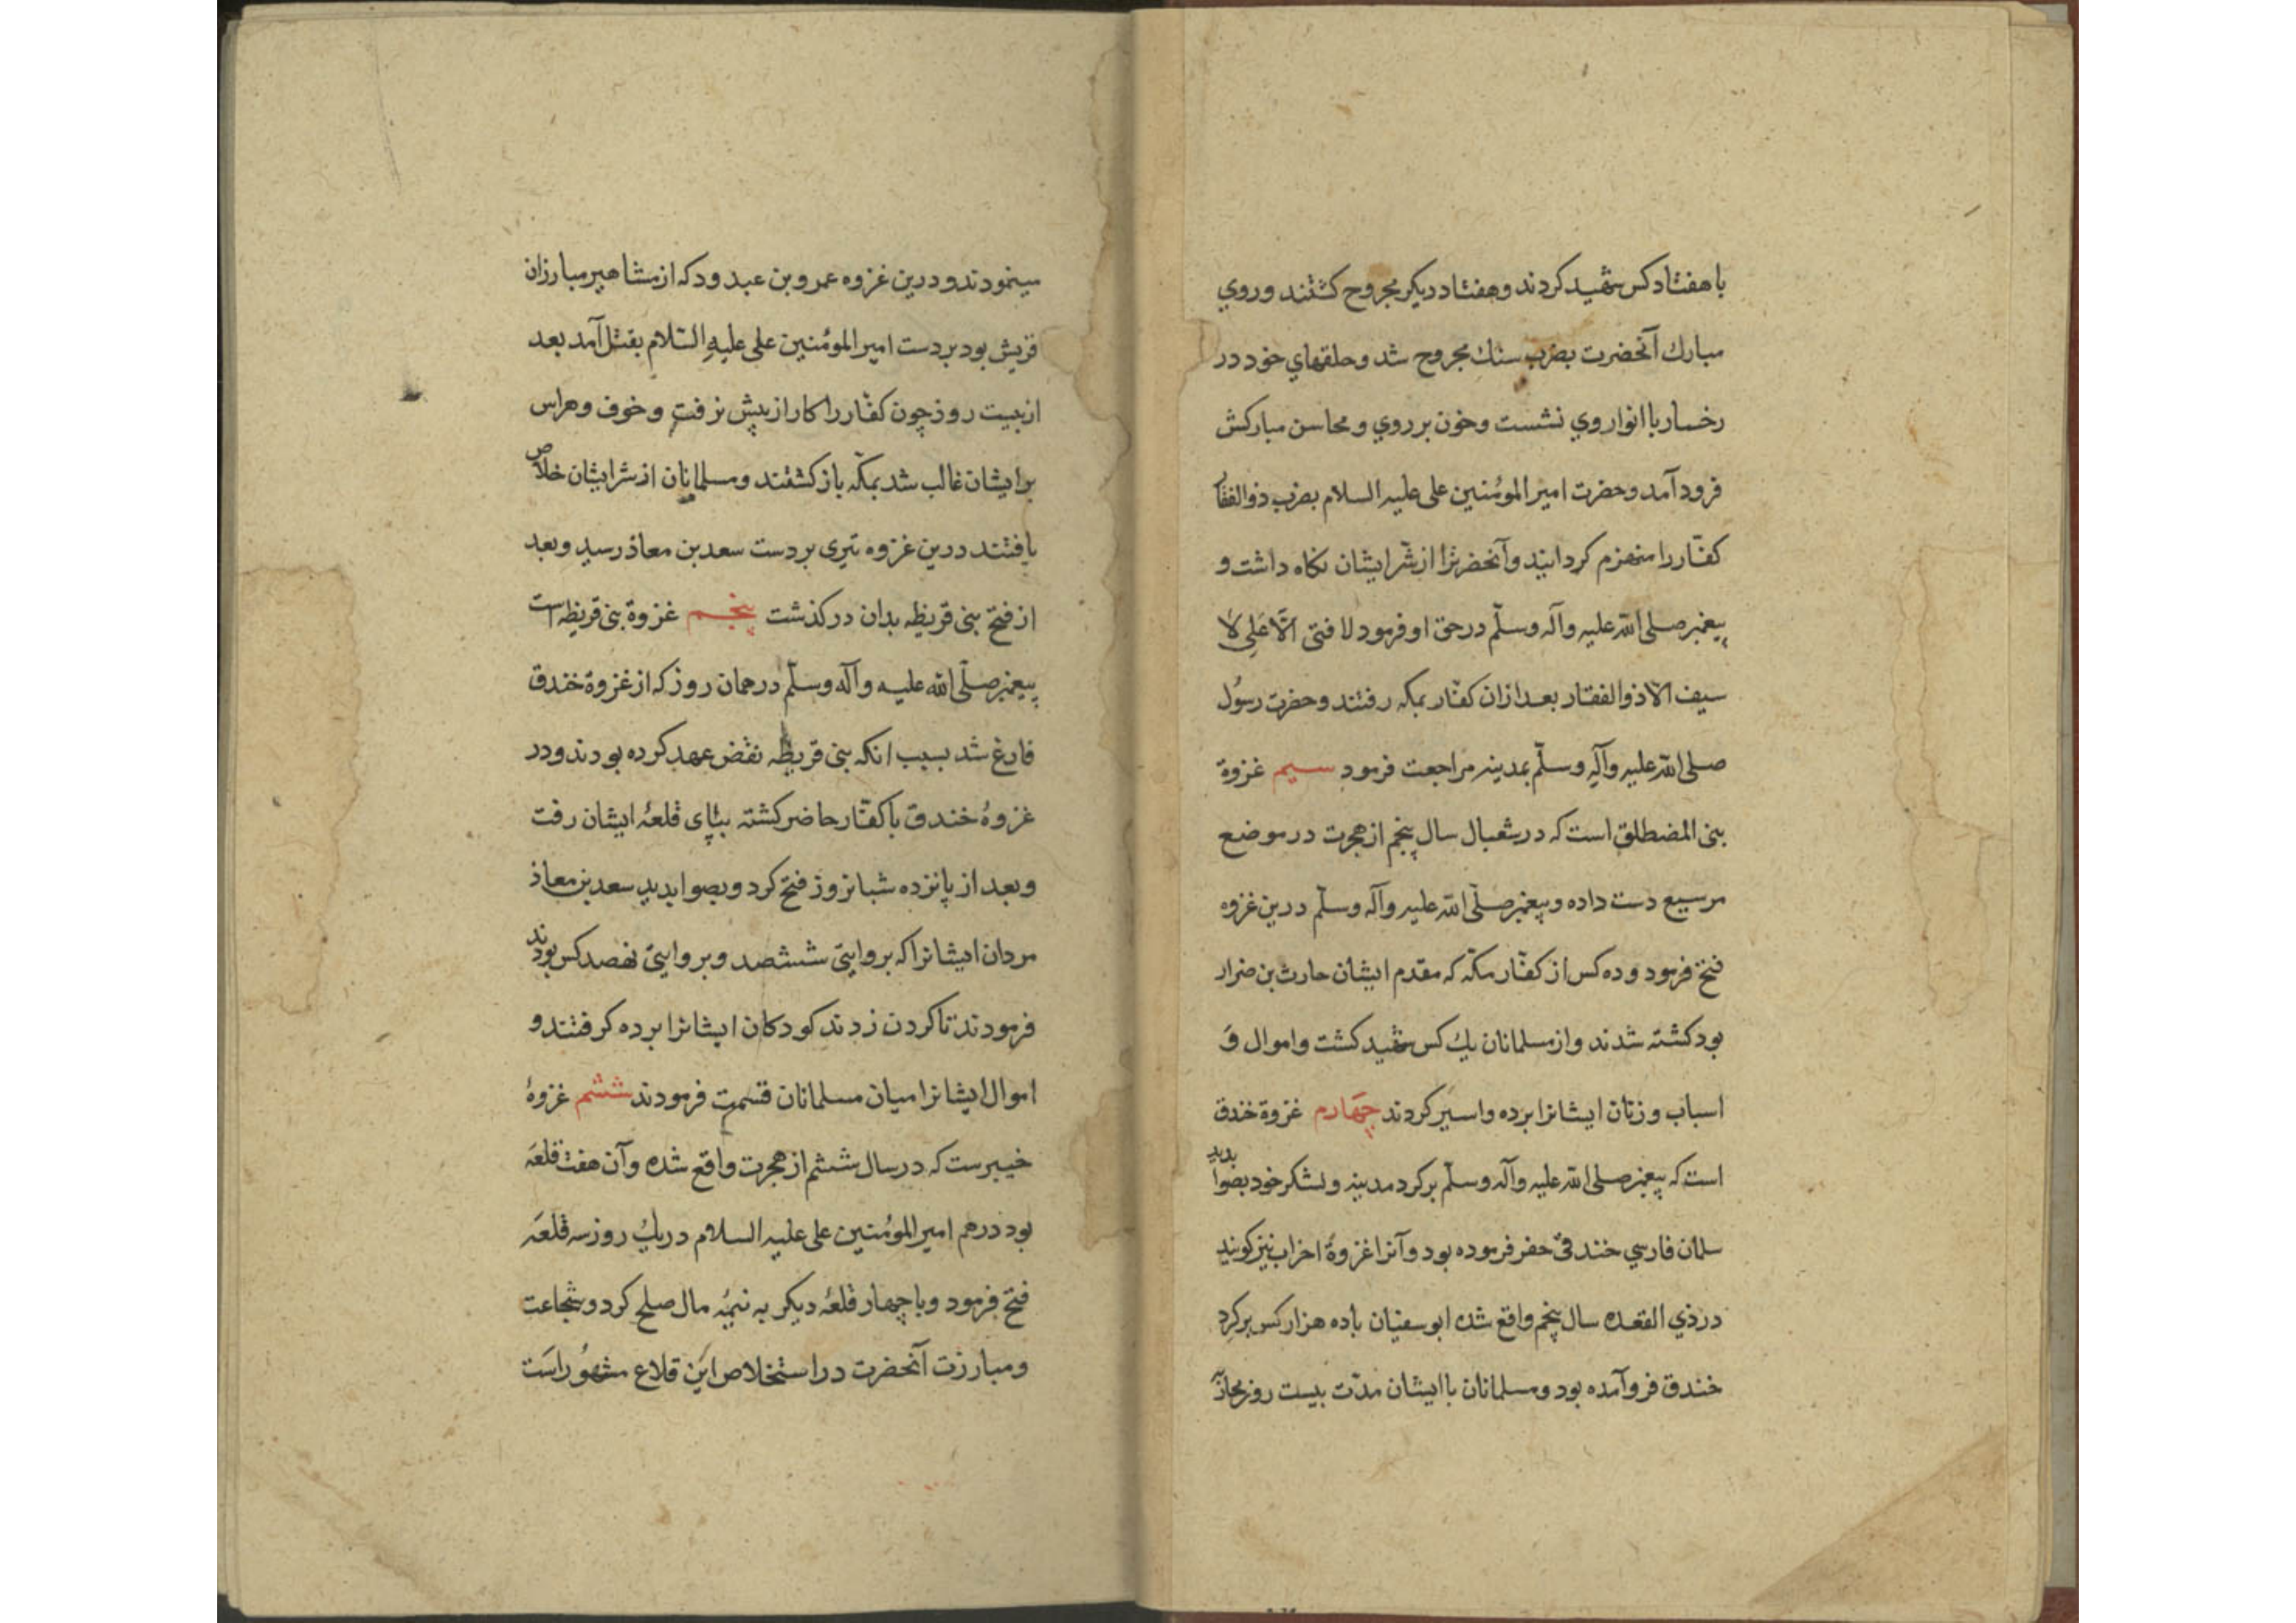 با هفتاد کس شهید کردند و هفتاد دیکر مجروح کشتند و روي
مبارك آنحضرت بضرب سنك مجروح شد و حلقهاي خود در
رخسار با انوار وي نشست و خون بر روي و محاسن مبارکش
فرود آمد و حضرت امیر المؤمنین علی علیه السلام بضرب ذو الفقار
کفّار را منهزم کردانید و آنحضرترا از شرّ ایشان نکاه داشت و
پیغمبر صلی الله علیه وآله وسلّم در حق او فرمود لا فتی الّا علی لا
سیف الّا ذو الفقار بعد ازان کفّار بمکه رفتند و حضرت رسُول
صلی الله علیه وآلهِ وسلّم بمدینه مراجعت فرمود سیم غزوة
بنی المضطلق است که در شعبال سال پنجم از هجرت در موضع
مرسیع دست داده و پیغمبر صلّی الله علیه وآله وسلّم درین غزوه
فتح فرمود و ده کس از کفّار مکّه که مقدم ایشان حارث بن ضرار
بود کشته شدند و از مسلمانان یك کس شهید کشت و اموال وَ
اسباب و زنان ایشانرا برده و اسیر کردند چهارم غزوة خندق
است که پیغمبر صلی الله علیه وآله وسلّم بر کرد مدینه و لشکر خود بصوابدید
سلمان فارسي خندقی حفر فرموده بود و آنرا غزوۀ احزاب نیز کویند
در ذي القعده سال پنجم واقع شده ابو سفیان با ده هزار کس بر کرِد
خندق فرو آمده بود و مسلمانان با ایشان مدّت بیست روز محاربه
مینمودند و درین غزوه عمرو بن عبد ود که از مشاهیر مبارزان
قریش بود بر دست امیر المؤمنین علی علیهِ السّلام بقتل آمد بعد
از بیست روز چون کفّار را کار از پیش نرفت و خوف و هراس
بر ایشان غالب شد بمکّه باز کشتند و مسلمانان از شر ایشان خلاص
یافتند درین غزوه تیری بر دست سعد بن معاذ رسید و بعد
از فتح بنی قریظه بدان در کذشت پنجم غزوة بنی قریظه است
پیغمبر صلّی الله علیه وآله وسلّم در همان روز که از غزوة خندق
فارغ شد بسبب انکه بنی قریظه نقض عهد کرده بودند و در
غزوۀ خندق با کفّار حاضر کشته بپای قلعۀ ایشان رفت
و بعد از پانزده شبانروز فتح کرد و بصوابدید سعد بن معاذ
مردان ایشانرا که بروایتی ششصد و بروایتی نهصد کس بودند
فرمودند تا کردن زدند کودکان ایشانرا برده کرفتند و
اموال ایشانرا میان مسلمانان قسمت فرمودند ششم غزوۀ
خیبرست که در سال ششم از هجرت واقع شده و آن هفت قلعَه
بود درهم امیر المؤمنین علی علیه السلام در یك روز سه قلعَه
فتح فرمود و با چهار قلعۀ دیکر به نیمۀ مال صلح کرد و شجاعت
و مبارزت آنحضرت در استخلاص این قلاع مشهُور است